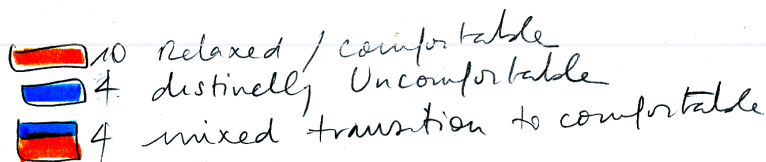 10 Relaxed / comfortable
4 distinctly Uncomfortable
4 mixed transition to comfortable